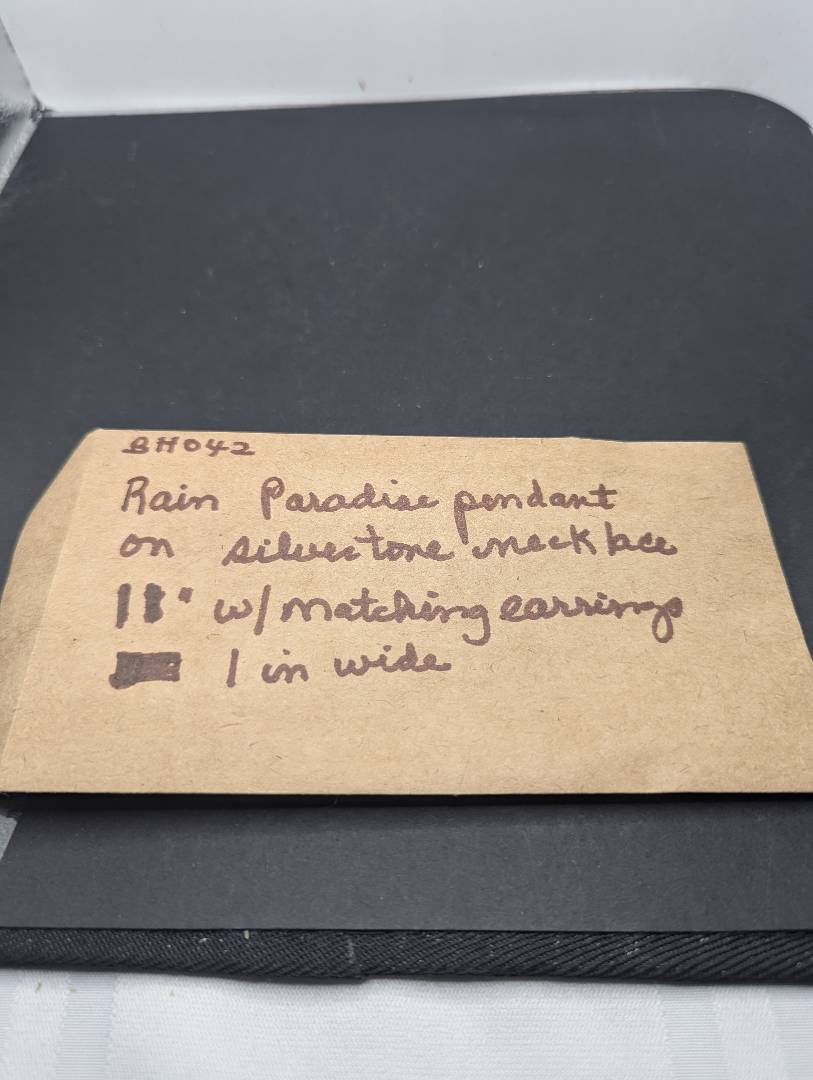 BH042
Rain Paradise pendant
on silvertone necklace
18" w/ matching earrings
1 in wide